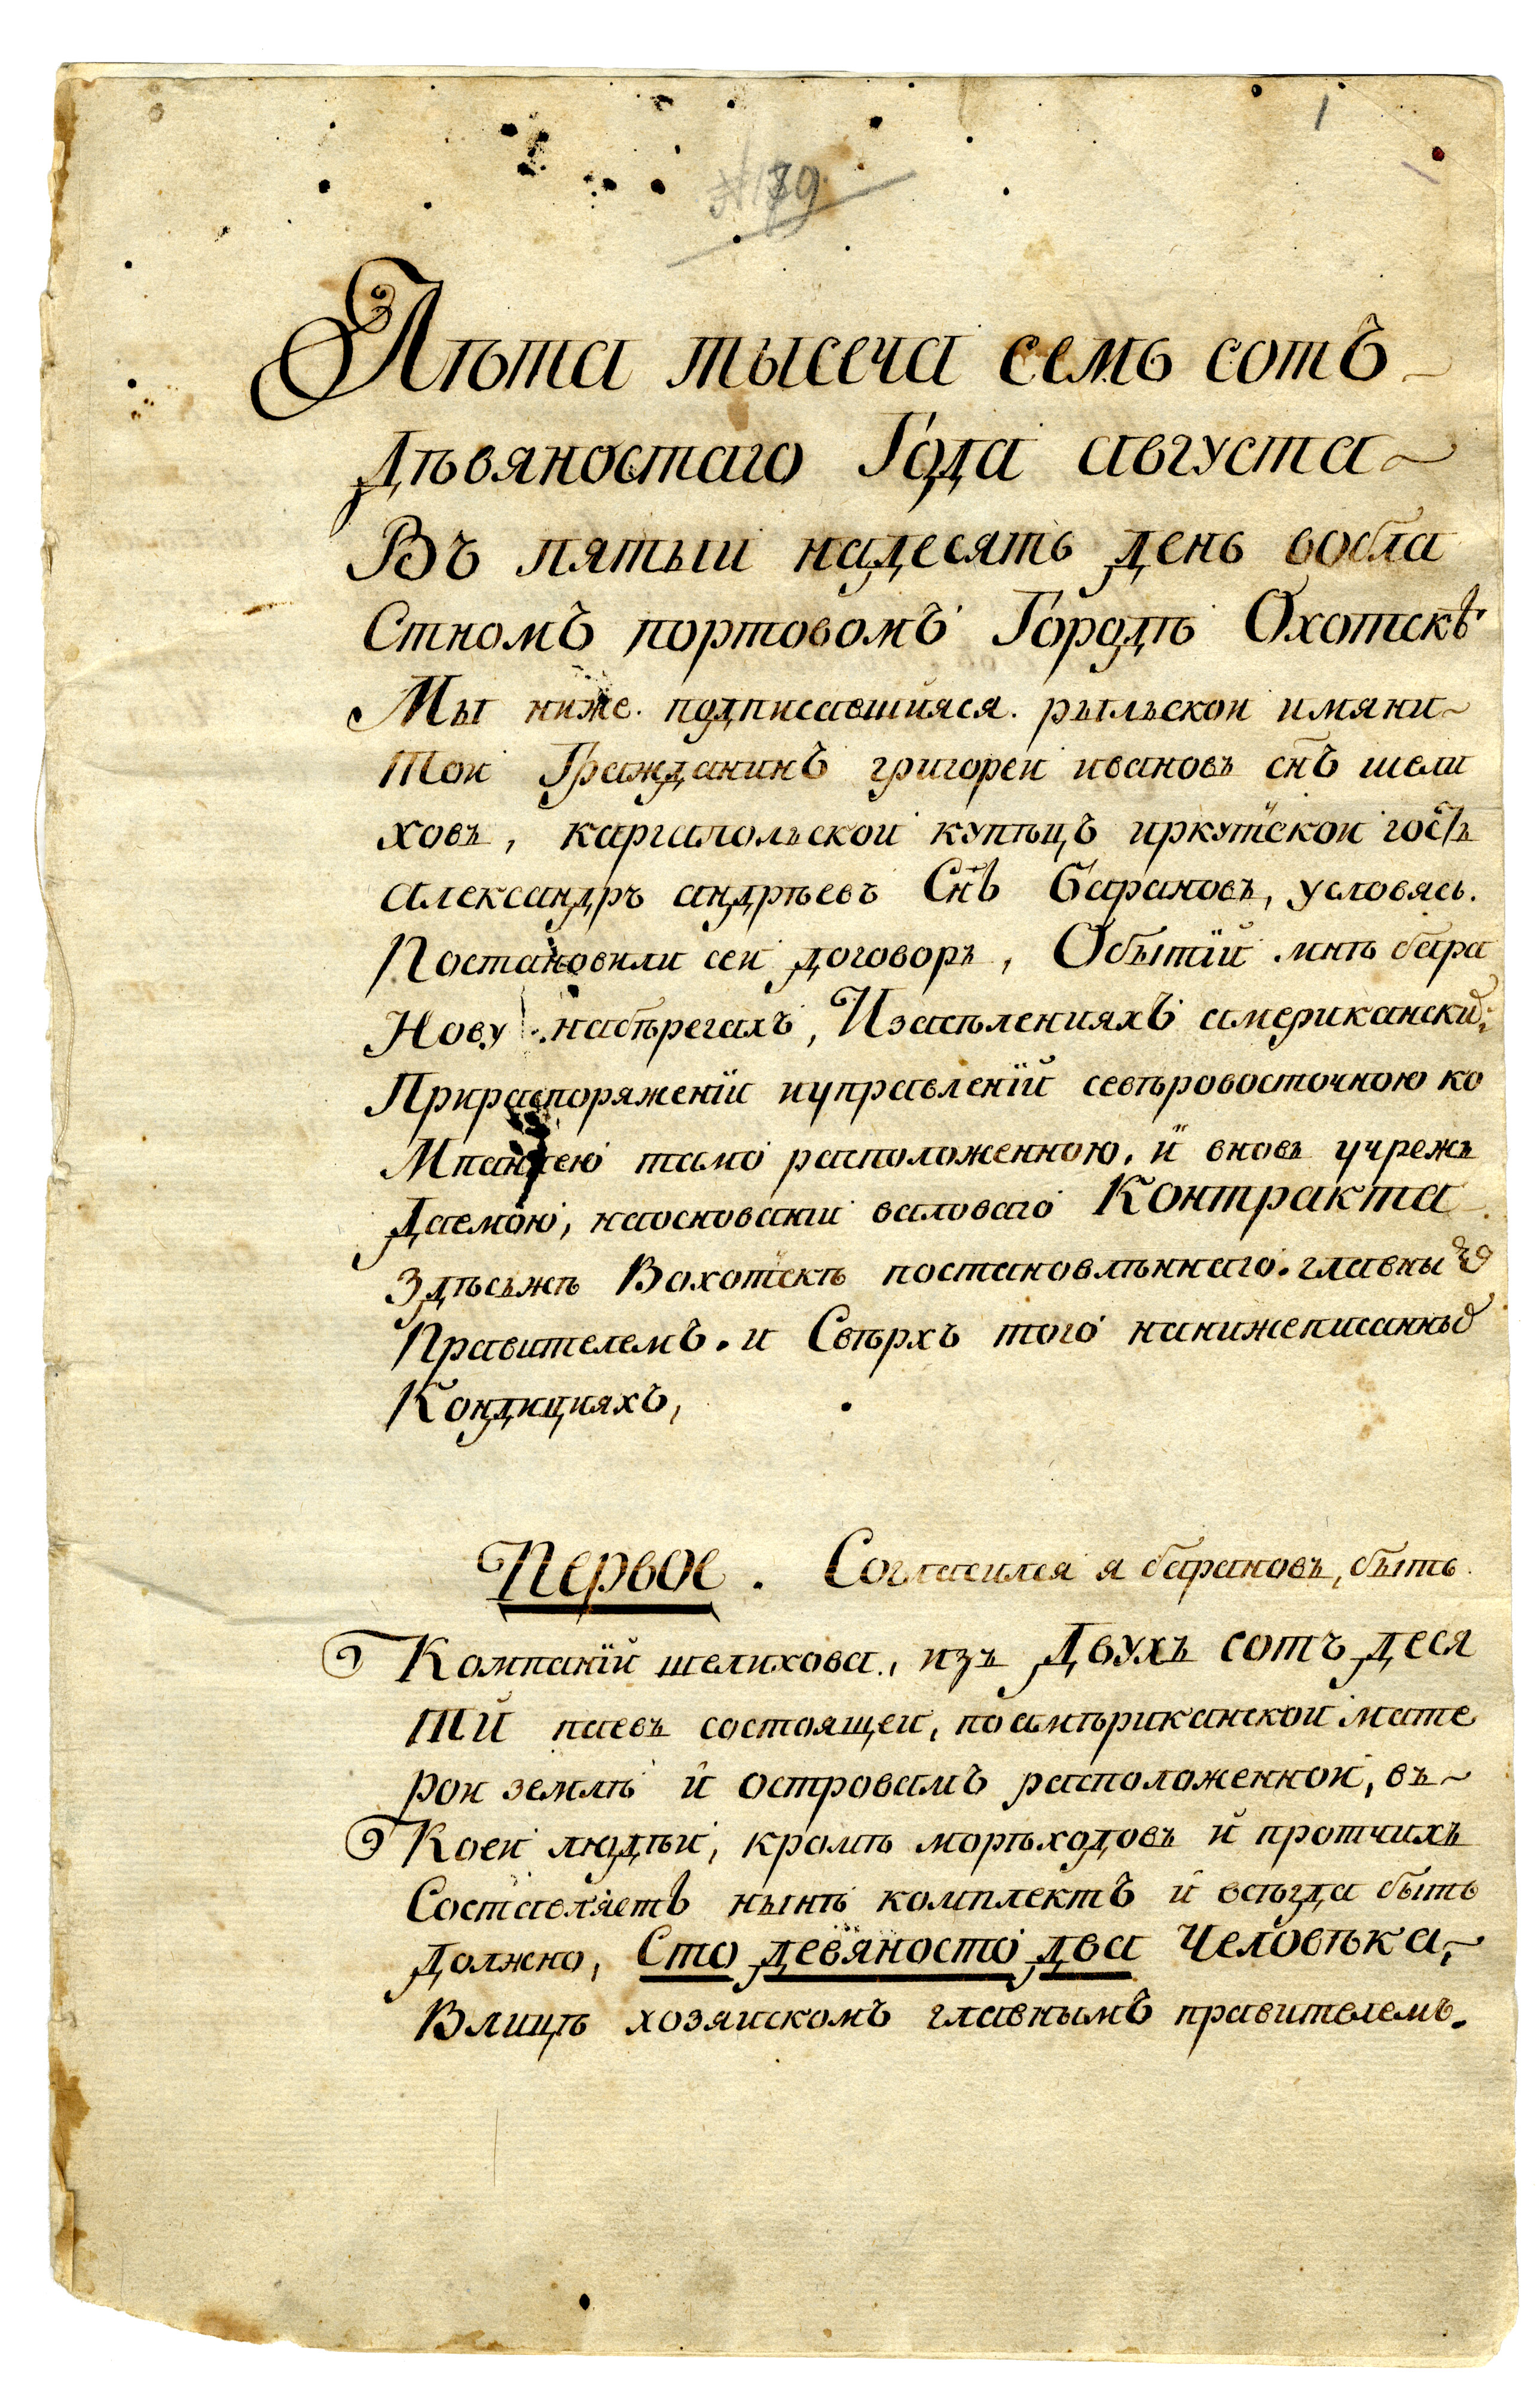 1
№ 179
Лѣта тысеча семь сотъ
Дѣвяностаго Года августа
Въ пятыи надесять день вобла
Стномъ портовомъ Городѣ Охотскѣ
Мы ниже подписавшийяся. рыльскои имяни
Тои Гражданинъ григореи ивановъ снъ шели
ховъ, каргапольскои купѣцъ иркутскои гость
александръ андрѣевъ Снъ барановъ, условясь.
Постановили сеи договоръ, Обытїй мнѣ бара
Нову набѣрегахъ, Изасѣленияхъ американски
Прираспоряженїи иуправленїй севѣровосточною ко
Мпаниею тамо расположенною, и вновь учрежъ
Даемою, наоснованїи валоваго Контракта
Здѣсьжѣ Вохотскѣ постановлѣннаго. главны
Правителемъ. и Свѣрхъ того нанижеписанных
Кондицияхъ,
Первое. Согласился я барановъ, быть
Компанїй шелихова, изъ Двухъ сотъ деся
Тй паевъ состоящеи, поамѣриканскои мате
рои землѣ й островамъ расположеннои, въ
Коеи людѣи, кромѣ морѣходовъ й протчихъ
Составляетъ нынѣ комплектъ й всѣгда быть
Должно, Сто девяносто два Человѣка,
Влицѣ хозяискомъ главнымъ правителемъ.